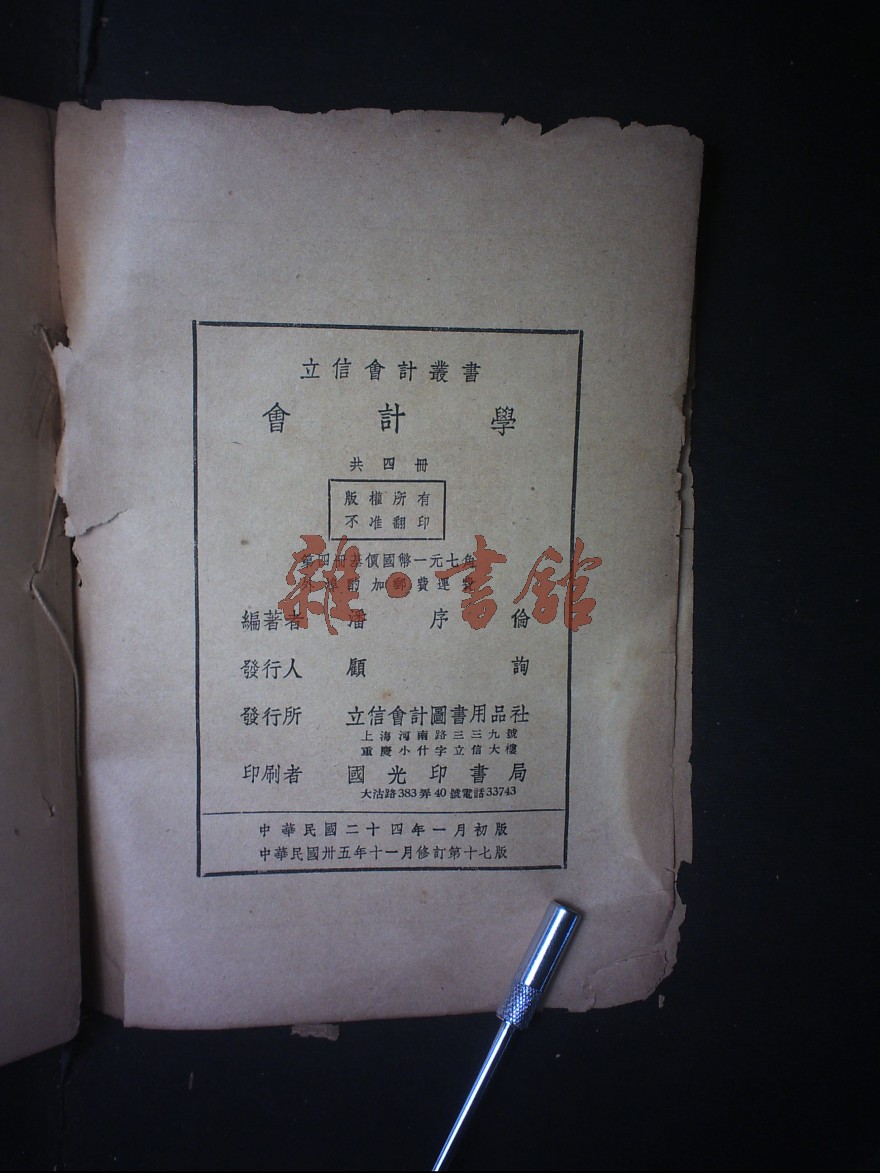 立信會計叢書
會計學
共四冊
版權所有
不准翻印
第四冊基價國幣一元七角
外埠酌加郵費運費
編著者 潘序倫
發行人 顧詢
發行所 立信會計圖書用品社
上海河南路三三九號
重慶小什字立信大樓
印刷者 國光印書局
大沽路383弄40號電話33743
中華民國二十四年一月初版
中華民國卅五年十一月修訂第十七版
雜·書館